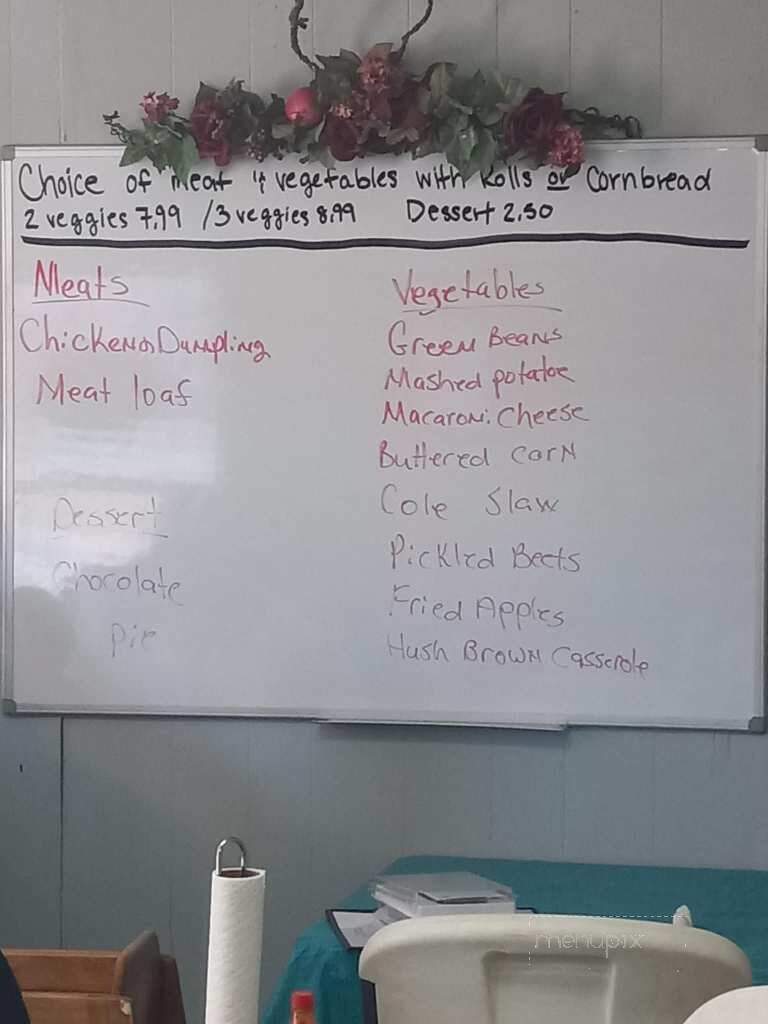 Choice of meat & vegetables with Rolls or Cornbread
2 veggies 7.99 / 3 veggies 8.99 Dessert 2.50
Meats
Chicken n Dumpling
Meat loaf
Dessert
Chocolate
pie
Vegetables
Green Beans
Mashed potatoe
Macaroni Cheese
Buttered Corn
Cole Slaw
Pickled Beets
Fried Apples
Hush Brown Casserole
menupix